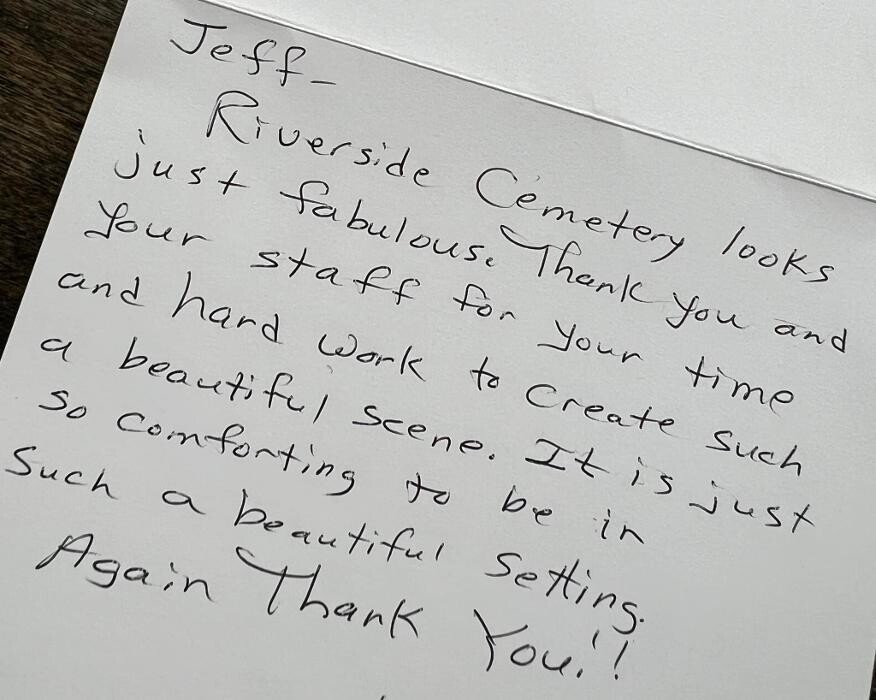 Jeff-
Riverside Cemetery looks
just fabulous. Thank you and
your staff for your time
and hard work to create such
a beautiful scene. It is just
so comforting to be in
such a beautiful setting.
Again Thank You!!